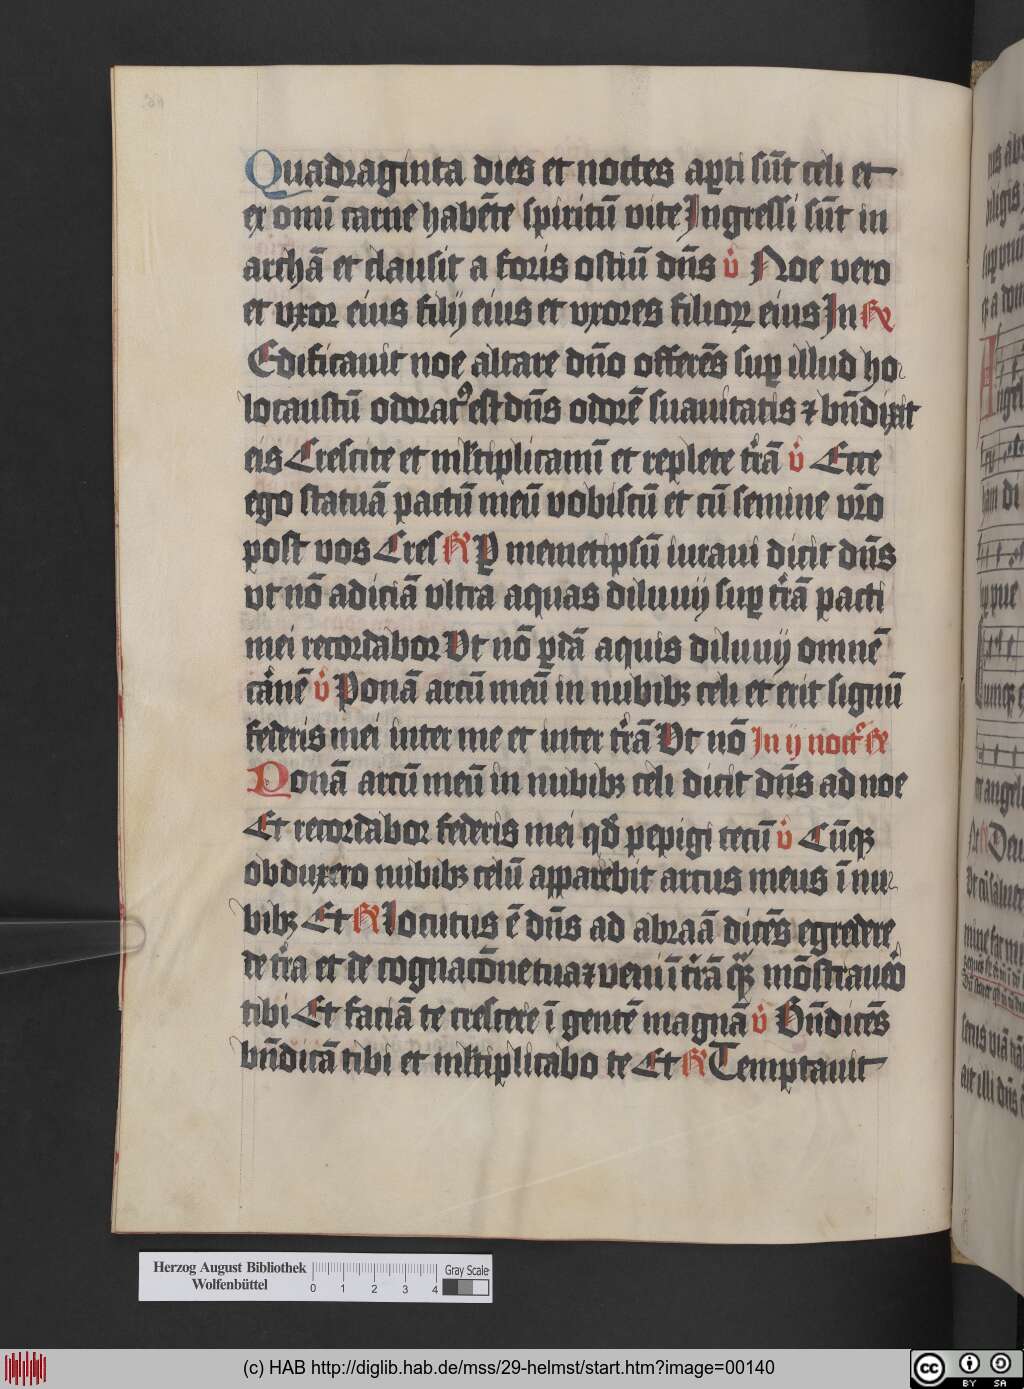 Quadraginta dies et noctes apti sūt celi et
ex omī carne habēte spiritū vite Ingressi sūt in
archā et clausit a foris ostiū dn̄s v̇ Noe vero
et vxor eius filij eius et vxores filioꝝ eius In ℟
Edificauit noe altare dn̄o offerēs suꝑ illud ho
locaustū odoratꝰ est dn̄s odorē suauitatis ⁊ bn̄dixit
eis Crescite et ml̄tiplicamī et replete t̄rā v̇ Ecce
ego statuā pactū meū vobiscū et cū semine vr̄o
post vos Cres ℟ Ꝑ memetipsū iuraui dicit dn̄s
vt nō adiciā vltra aquas diluuij suꝑ t̄rā pacti
mei recordabor Vt nō ꝑdā aquis diluuij omnē
carnē v̇ Ponā arcū meū in nubibꝫ celi et erit signū
federis mei inter me et inter t̄rā Vt nō In ij noct̄ ℟
Ponā arcū meū in nubibꝫ celi dicit dn̄s ad noe
Et recordabor federis mei qd̄ pepigi tecū v̇ Cūqꝫ
obduxero nubibꝫ celū apparebit arcus meus ī nu
bibꝫ Et ℟ Locutus ē dn̄s ad abraā dicēs egredere
de t̄ra et de cognacōne tua ⁊ veni ī t̄rā quā mōstrauero
tibi Et faciā te crescere ī gentē magnā v̇ Bn̄dicēs
bn̄dicā tibi et ml̄tiplicabo te Et ℟ Temptauit
Herzog August Bibliothek
Wolfenbüttel
0 1 2 3 4
Gray Scale
(c) HAB http://diglib.hab.de/mss/29-helmst/start.htm?image=00140
cc BY SA